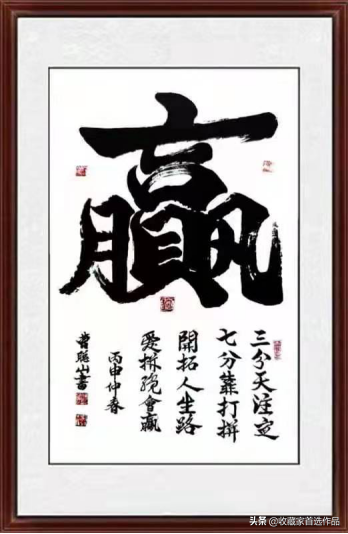 贏
三分天注定
七分靠打拼
開拓人生路
愛拼總會贏
丙申仲春
山書
头条 @收藏家首选作品